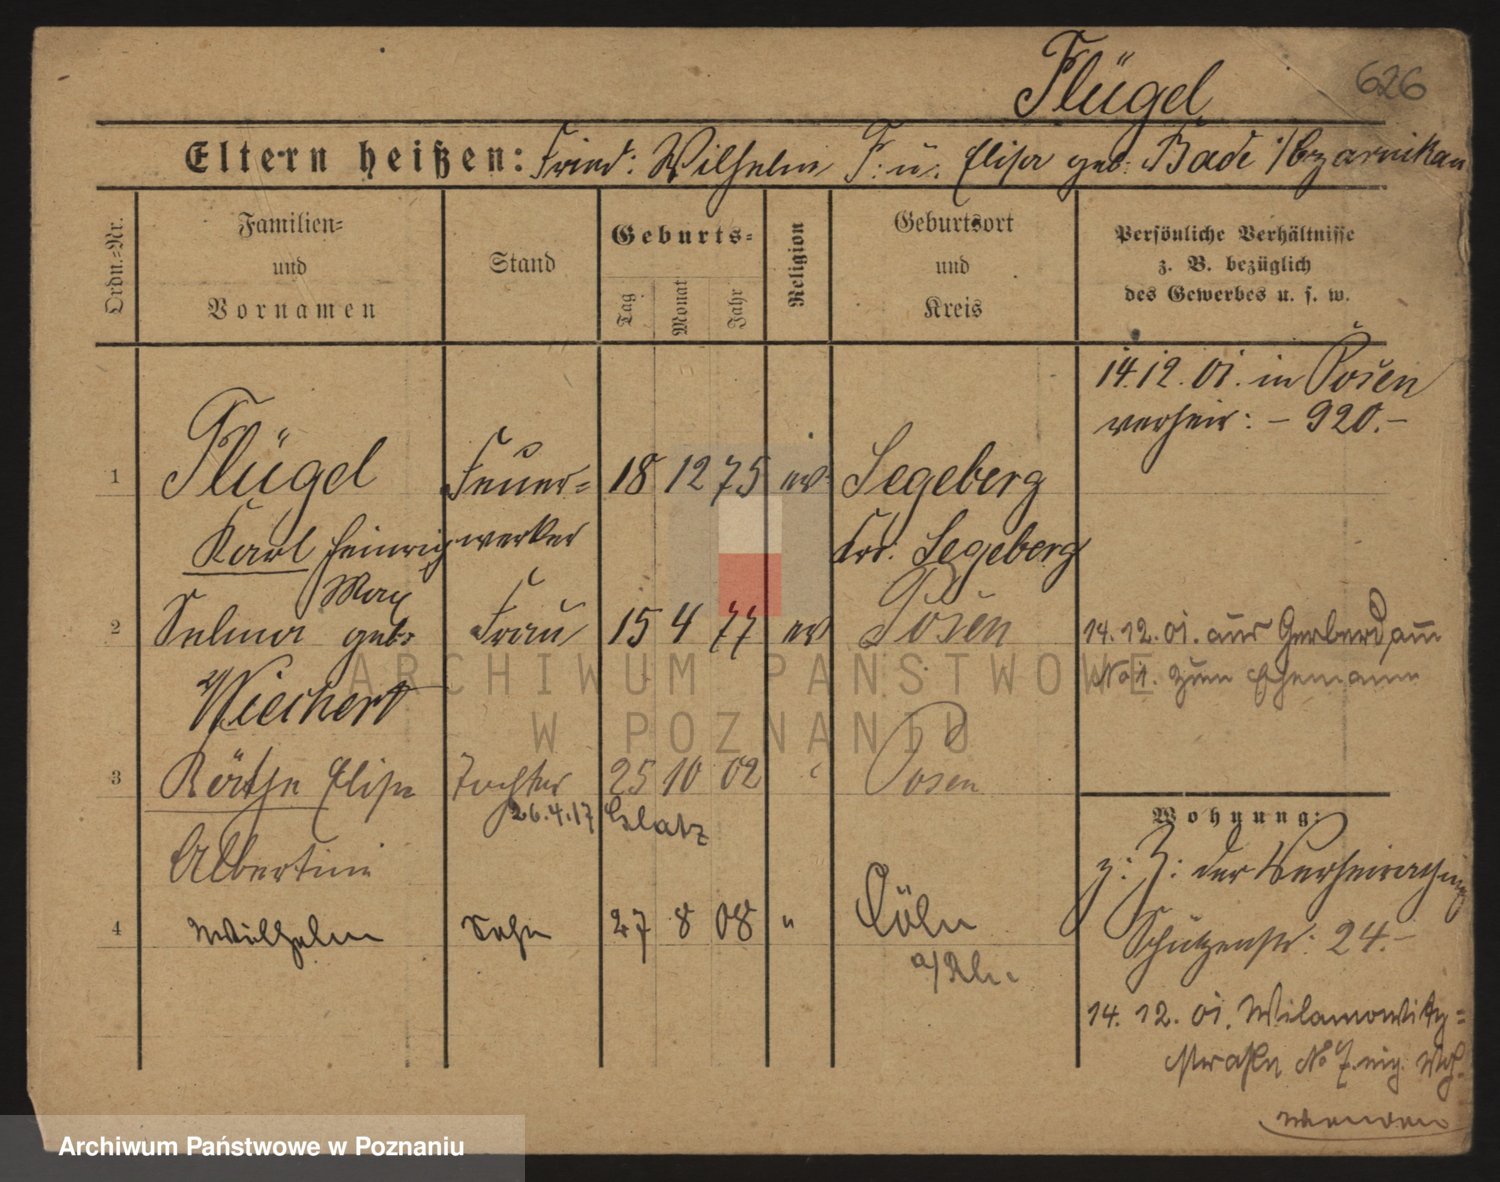 Flügel
626
Eltern heißen: Fried: Wilhelm F: u. Elise geb: Bade /Czarnikau
Ordn.=Nr.
Familien=
und
Vornamen
Stand
Geburts=
Tag
Monat
Jahr
Religion
Geburtsort
und
Kreis
Persönliche Verhältnisse
z. B. bezüglich
des Gewerbes u. s. w.
14.12.01. in Posen
verheir: – 920.–
1 Flügel Feuer= 18 12 75 ev. Segeberg
Karl Heinrich werker Krs. Segeberg
Max
2 Selma geb: Frau 15 4 77 ev Posen
14.12.01. aus Gerberdamm
No 1. zum Ehemann
Wiechert
3 Käthe Elise Tochter 25 10 02 " Posen
26.4.17 Glatz
Albertine
4 Wilhelm Sohn 27 8 08 " Cöln
a/Rh.
Wohnung:
z: Z: der Verheirathung
Schützenstr: 24.–
14. 12. 01. Wilamowitz=
straße No 7. eig. Whg.
wenden
ARCHIWUM PAŃSTWOWE
W POZNANIU
Archiwum Państwowe w Poznaniu